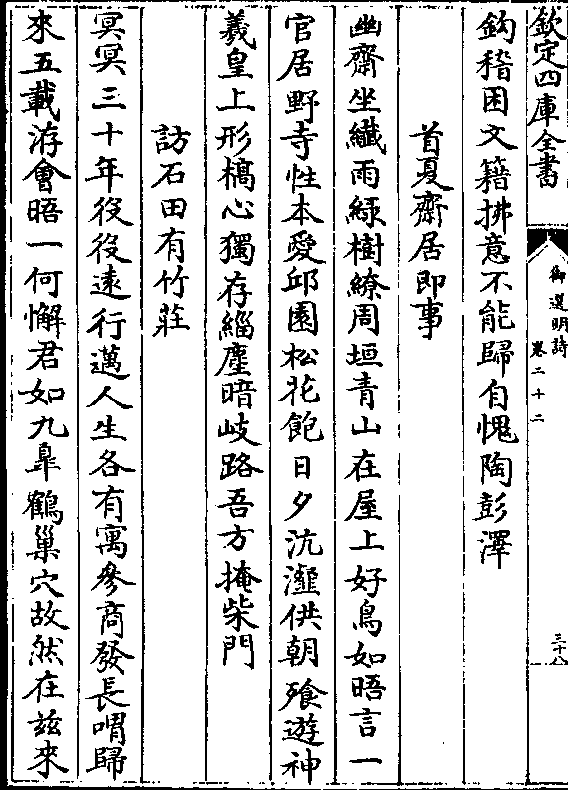 欽定四庫全書
御選明詩
卷二十二
三十八
鈎稽困文籍拂意不能歸自愧陶彭澤
首夏齋居即事
幽齋坐纖雨綠樹繚周垣青山在屋上好鳥如晤言一
官居野寺性本愛邱園松花飽日夕沆瀣供朝飱遊神
羲皇上形槁心獨存緇塵暗岐路吾方掩柴門
訪石田有竹莊
冥冥三十年役役遠行邁人生各有寓參商發長喟歸
來五載浮會晤一何懈君如九臯鶴巢穴故然在兹來